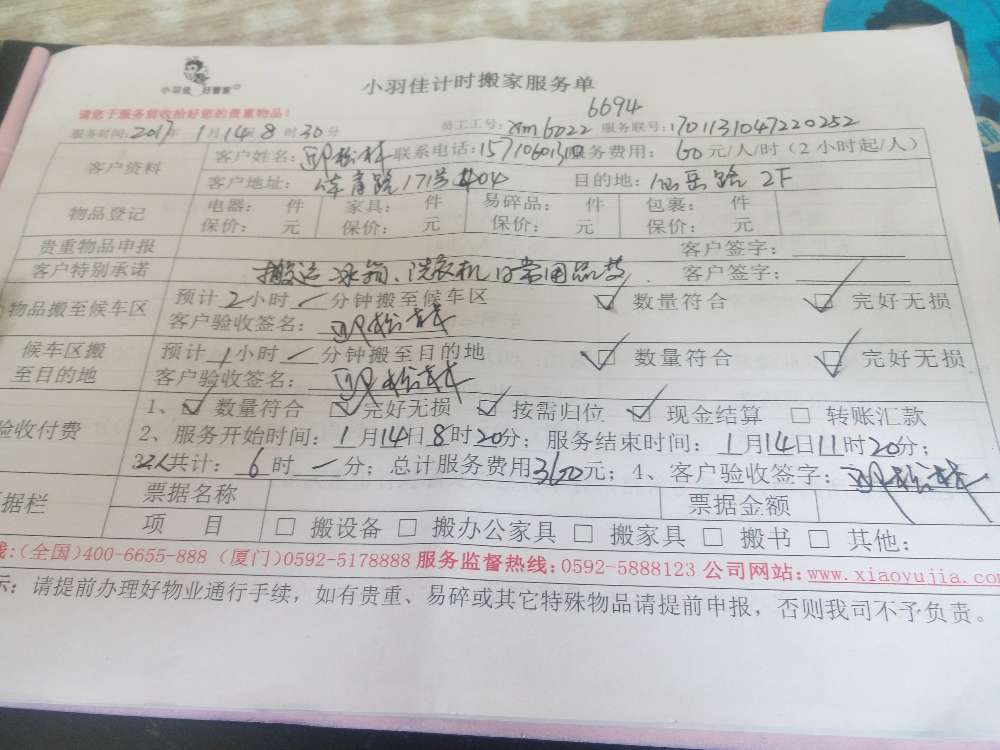 小羽佳 好管家
小羽佳计时搬家服务单
请您于服务前收拾好您的贵重物品!
6694
服务时间:2017年1月14日8时30分 员工工号:xm6022 服务联号:1701131047220252
客户资料
客户姓名: 联系电话: 服务费用: 60元/人/时(2小时起/人)
客户地址: 体育路171号 目的地:仙岳路2F
物品登记 电器: 件 家具: 件 易碎品: 件 包裹: 件
保价: 元 保价: 元 保价: 元 保价: 元
贵重物品申报 客户签字:
客户特别承诺 搬运冰箱、洗衣机日常用品等. 客户签字:
物品搬至候车区 预计2小时一分钟搬至候车区 ☑ 数量符合 ☑ 完好无损
客户验收签名:
候车区搬至目的地 预计1小时一分钟搬至目的地 ☑ 数量符合 ☑ 完好无损
客户验收签名:
验收付费 1、☑ 数量符合 ☑ 完好无损 ☑ 按需归位 ☑ 现金结算 □ 转账汇款
2、服务开始时间:1月14日8时20分;服务结束时间:1月14日11时20分;
共计:6时一分;总计服务费用360元;4、客户验收签字:
据栏 票据名称 票据金额
项 目 □ 搬设备 □ 搬办公家具 □ 搬家具 □ 搬书 □ 其他:
线:(全国)400-6655-888 (厦门)0592-5178888 服务监督热线:0592-5888123 公司网站:www.xiaoyujia.com
示:请提前办理好物业通行手续,如有贵重、易碎或其它特殊物品请提前申报,否则我司不予负责。